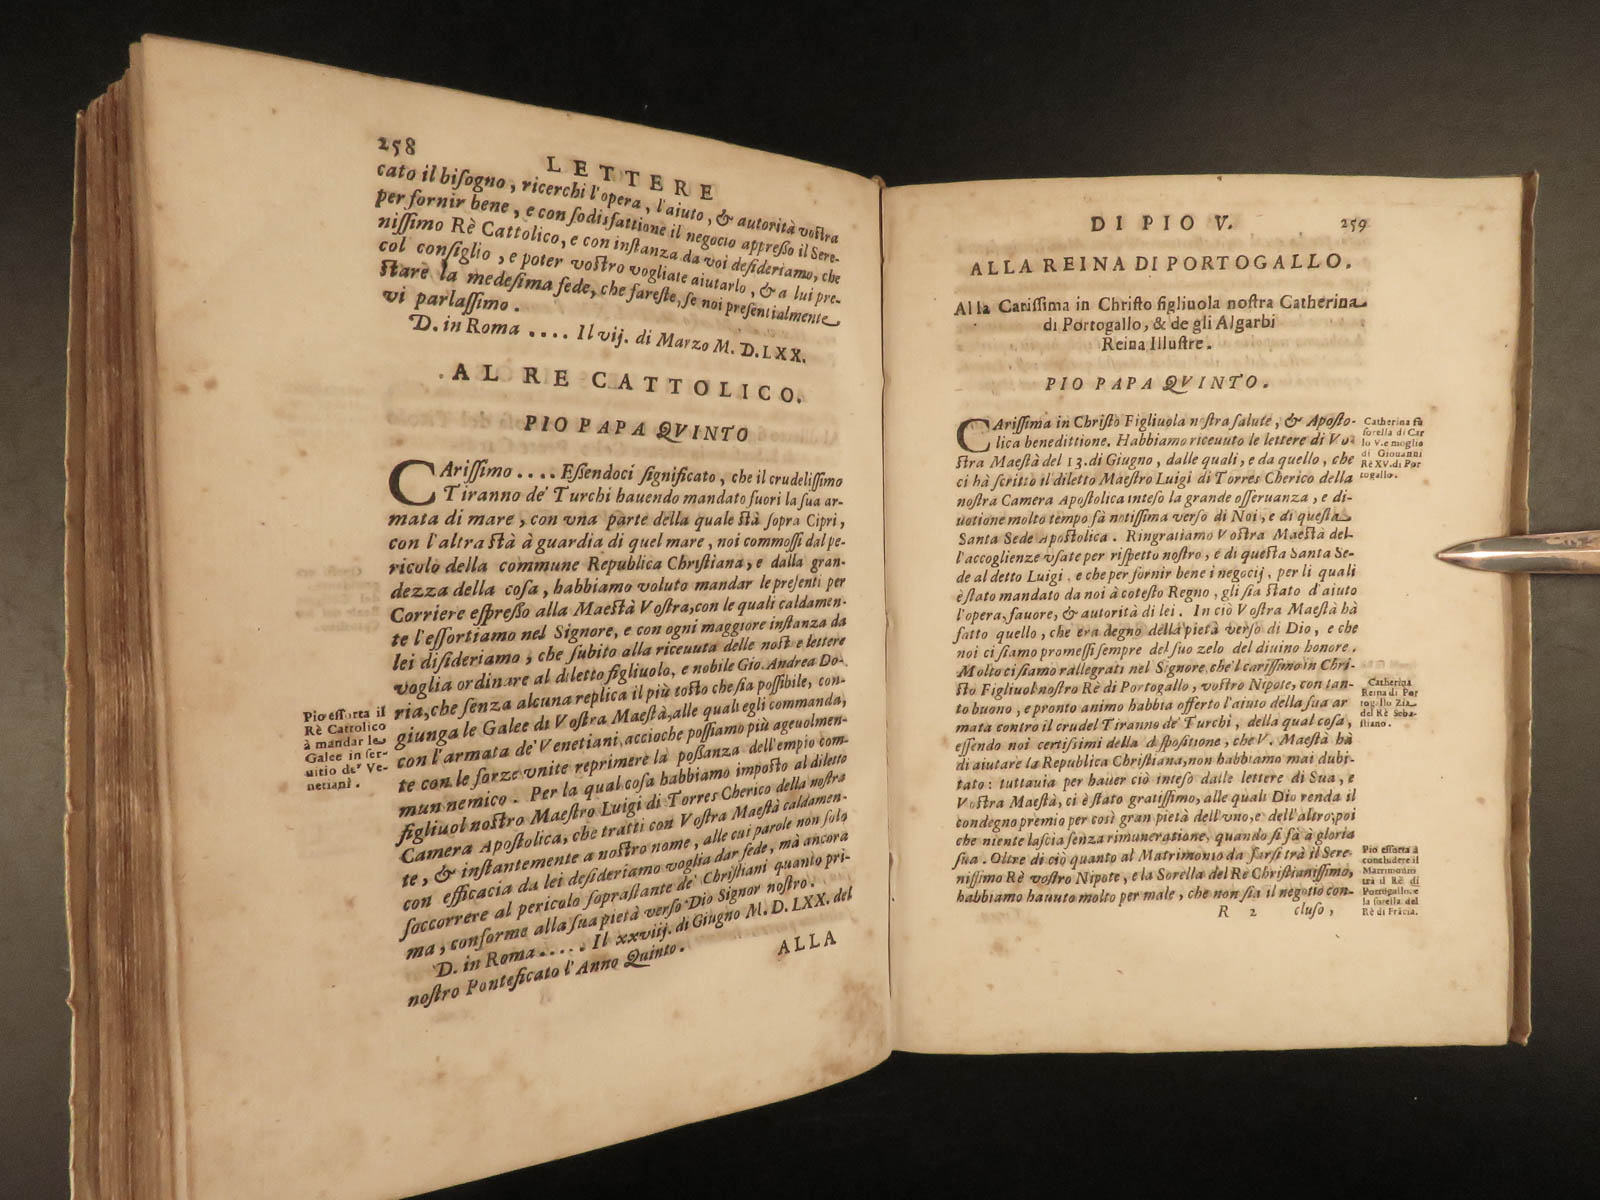 258
LETTERE
cato il bisogno, ricerchi l'opera, l'aiuto, & autorità vostra
per fornir bene, e con sodisfattione il negocio appresso il Sere-
nissimo Rè Cattolico, e con instanza da voi desideriamo, che
col consiglio, e poter vostro vogliate aiutarlo, & a lui pre-
stare la medesima fede, che fareste, se noi presentialmente
vi parlassimo.
D. in Roma .... Il vij. di Marzo M. D. LXX.
AL RE CATTOLICO.
PIO PAPA QVINTO
CArissimo .... Essendoci significato, che il crudelissimo
Tiranno de' Turchi hauendo mandato fuori la sua ar-
mata di mare, con vna parte della quale stà sopra Cipri,
con l'altra stà à guardia di quel mare, noi commossi dal pe-
ricolo della commune Republica Christiana, e dalla gran-
dezza della cosa, habbiamo voluto mandar le presenti per
Corriere espresso alla Maestà Vostra, con le quali caldamen-
te l'essortiamo nel Signore, e con ogni maggiore instanza da
lei disideriamo, che subito alla riceuuta delle nostre lettere
voglia ordinare al diletto figliuolo, e nobile Gio. Andrea Do-
ria, che senza alcuna replica il più tosto che sia possibile, con-
giunga le Galee di Vostra Maestà, alle quali egli commanda,
con l'armata de' Venetiani, accioche possiamo più ageuolmen-
te con le forze vnite reprimere la possanza dell'empio com-
mun nemico. Per la qual cosa habbiamo imposto al diletto
figliuol nostro Maestro Luigi di Torres Cherico della nostra
Camera Apostolica, che tratti con Vostra Maestà caldamen-
te, & instantemente a nostro nome, alle cui parole non solo
con efficacia da lei desideriamo voglia dar fede, mà ancora
soccorrere al pericolo soprastante de' Christiani quanto pri-
ma, conforme alla sua pietà verso Dio Signor nostro.
D. in Roma..... Il xxviij. di Giugno M. D. LXX. del
nostro Pontificato l'Anno Quinto.
ALLA
Pio essorta il
Rè Cattolico
à mandar le
Galee in ser-
uitio de' Ve-
netiani.
DI PIO V.
259
ALLA REINA DI PORTOGALLO.
Alla Carissima in Christo figliuola nostra Catherina
di Portogallo, & de gli Algarbi
Reina Illustre.
PIO PAPA QVINTO.
CArissima in Christo Figliuola nostra salute, & Aposto-
lica benedittione. Habbiamo riceuuto le lettere di Vo-
stra Maestà del 13. di Giugno, dalle quali, e da quello, che
ci hà scritto il diletto Maestro Luigi di Torres Cherico della
nostra Camera Apostolica inteso la grande osseruanza, e di-
uotione molto tempo fà notissima verso di Noi, e di questa
Santa Sede Apostolica. Ringratiamo Vostra Maestà del-
l'accoglienze vsate per rispetto nostro, e di questa Santa Se-
de al detto Luigi, e che per fornir bene i negocij, per li quali
è stato mandato da noi à cotesto Regno, gli sia stato d'aiuto
l'opera, fauore, & autorità di lei. In ciò Vostra Maestà hà
fatto quello, che era degno della pietà verso di Dio, e che
noi ci siamo promessi sempre del suo zelo del diuino honore.
Molto ci siamo rallegrati nel Signore, che'l carissimo in Chri-
sto Figliuol nostro Rè di Portogallo, vostro Nipote, con tan-
to buono, e pronto animo habbia offerto l'aiuto della sua ar
mata contro il crudel Tiranno de' Turchi, della qual cosa,
essendo noi certissimi della dispositione, che V. Maestà hà
di aiutare la Republica Christiana, non habbiamo mai dubi-
tato: tuttauia per hauer ciò inteso dalle lettere di Sua, e
Vostra Maestà, ci è stato gratissimo, alle quali Dio renda il
condegno premio per così gran pietà dell'vno, e dell'altro, poi
che niente lascia senza rimuneratione, quando si fà à gloria
sua. Oltre di ciò quanto al Matrimonio da farsi trà il Sere-
nissimo Rè vostro Nipote, e la Sorella del Rè Christianissimo,
habbiamo hauuto molto per male, che non sia il negotio con-
R 2 cluso,
Catherina fù
sorella di Car
lo V. e moglie
di Giouanni
Rè XV. di Por
togallo.
Catherina
Reina di Por
togallo Zia
del Rè Seba-
stiano.
Pio essorta à
concludere il
Matrimonio
trà il Rè di
Portogallo, e
la sorella del
Rè di Frãcia.